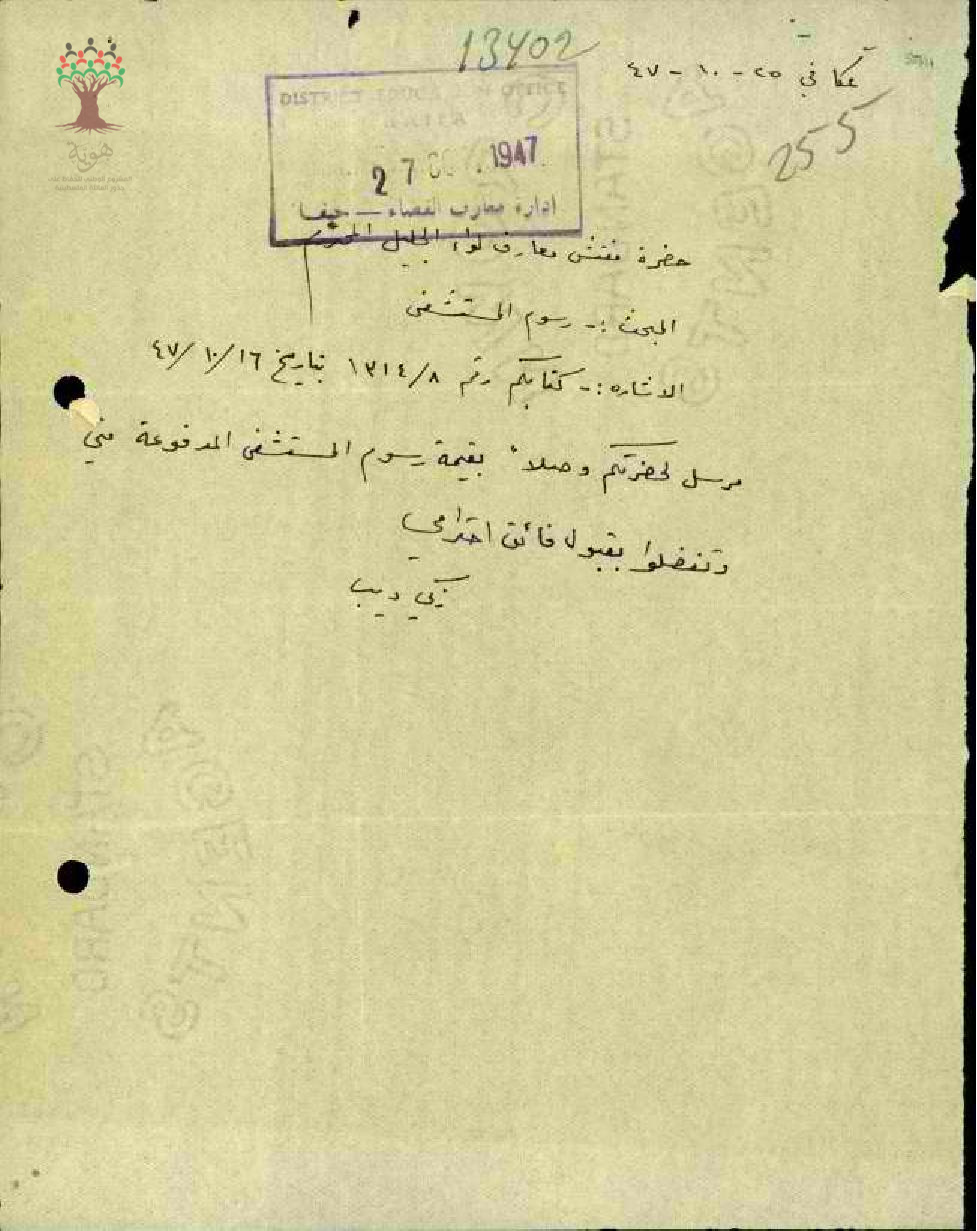 13402
عكا في ٢٥ - ١٠ - ٤٧
255
DISTRICT EDUCATION OFFICE
HAIFA
27 OCT. 1947
ادارة معارف القضاء — حيفا
حضرة مفتش معارف لواء الجليل المحترم
المبحث :- رسوم المستشفى
الاشاره :- كتابكم رقم ١٣١٤/٨ بتاريخ ٤٧/١٠/١٦
مرسل لحضرتكم وصلاً بقيمة رسوم المستشفى المدفوعة مني
وتفضلوا بقبول فائق احترامي
زكي ديب
هوية